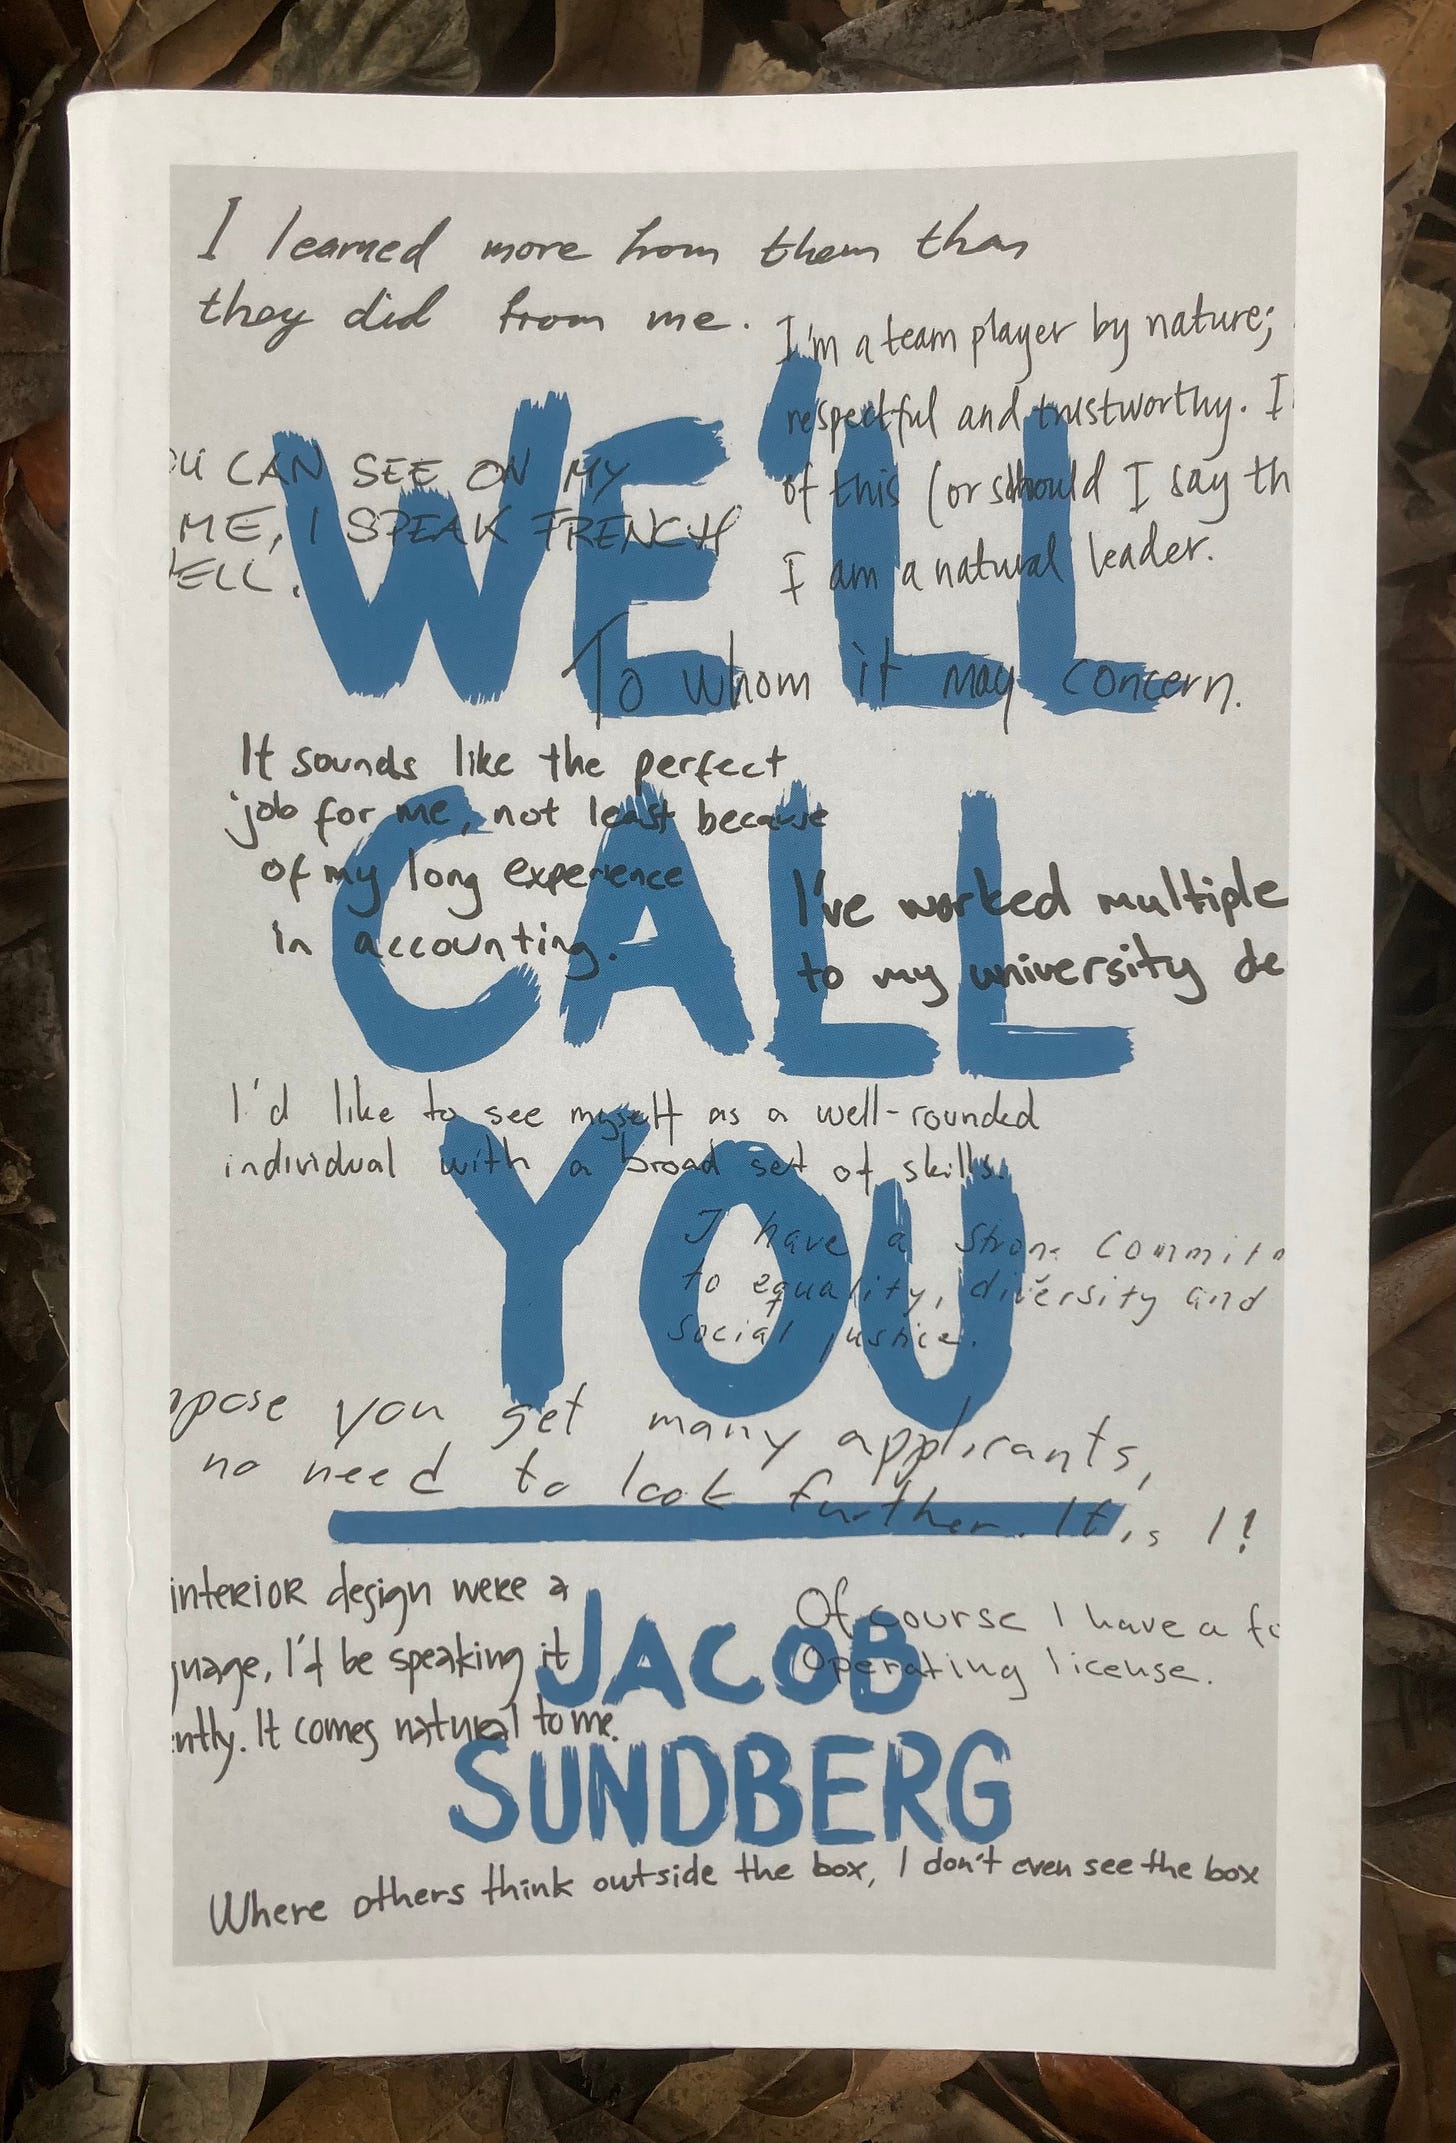 I learned more from them than
they did from me.
I'm a team player by nature;
respectful and trustworthy. I
of this (or should I say th
I am a natural leader.
OU CAN SEE ON MY
ME, I SPEAK FRENCH
ELL.
WE'LL
To whom it may concern.
It sounds like the perfect
job for me, not least because
of my long experience
in accounting.
CALL
I've worked multiple
to my university de
I'd like to see myself as a well-rounded
individual with a broad set of skills.
YOU
I have a strong commitm
to equality, diversity and
social justice.
ppose you get many applicants,
no need to look further. It is I!
interior design were a
guage, I'd be speaking it
ently. It comes natural to me.
Of course I have a fo
operating license.
JACOB
SUNDBERG
Where others think outside the box, I don't even see the box